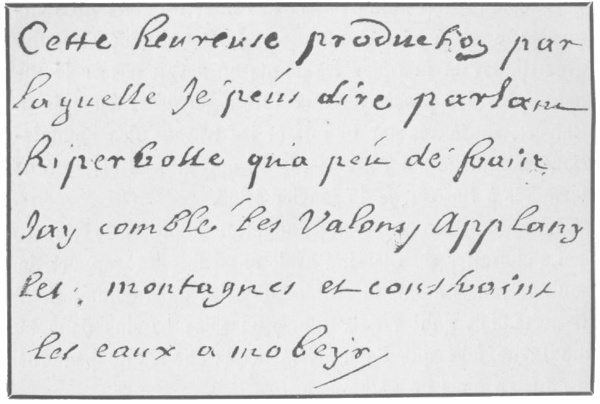 Cette heureuse production par
laquelle Je peús dire parlant
hiperbolle qu'a peu de fraix
Jay comblé les Valons, Applany
les montagnes et constraint
les eaux a mobeyr